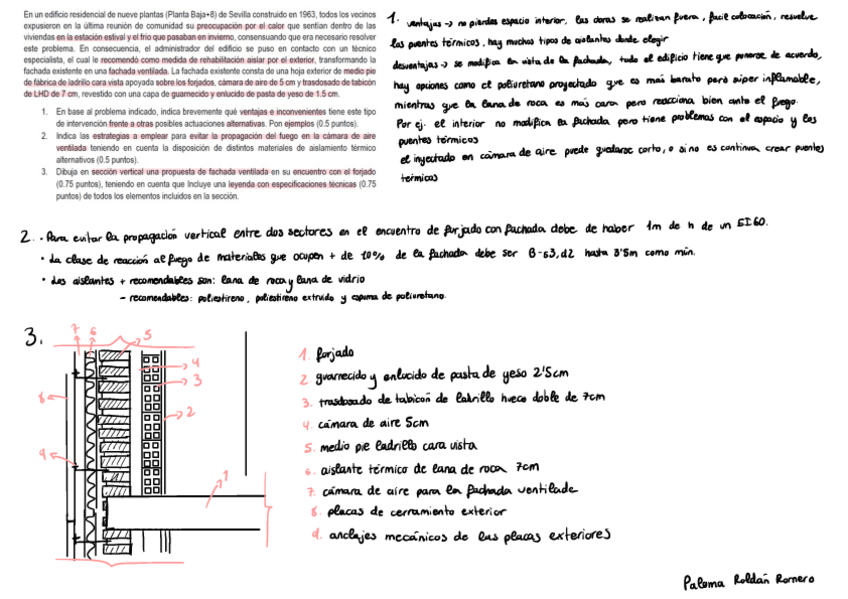 En un edificio residencial de nueve plantas (Planta Baja+8) de Sevilla construido en 1963, todos los vecinos
expusieron en la última reunión de comunidad su preocupación por el calor que sentían dentro de las
viviendas en la estación estival y el frío que pasaban en invierno, consensuando que era necesario resolver
este problema. En consecuencia, el administrador del edificio se puso en contacto con un técnico
especialista, el cual le recomendó como medida de rehabilitación aislar por el exterior, transformando la
fachada existente en una fachada ventilada. La fachada existente constaba de una hoja exterior de medio pie
de fábrica de ladrillo cara vista apoyada sobre los forjados, cámara de aire de 5 cm y trasdosado de tabicón
de LHD de 7 cm, revestido con una capa de guarnecido y enlucido de pasta de yeso de 1.5 cm.
1. En base al problema indicado, indica brevemente qué ventajas e inconvenientes tiene este tipo
de intervención frente a otras posibles actuaciones alternativas. Pon ejemplos (0.5 puntos).
2. Indica las estrategias a emplear para evitar la propagación del fuego en la cámara de aire
ventilada teniendo en cuenta la disposición de distintos materiales de aislamiento térmico
alternativos (0.5 puntos).
3. Dibuja en sección vertical una propuesta de fachada ventilada en su encuentro con el forjado
(0.75 puntos), teniendo en cuenta que Incluye una leyenda con especificaciones técnicas (0.75
puntos) de todos los elementos incluidos en la sección.
1. ventajas → no pierdes espacio interior, las obras se realizan fuera, facil colocación, resuelve
los puentes térmicos, hay muchos tipos de aislantes donde elegir
desventajas → se modifica en vista de la fachada, todo el edificio tiene que ponerse de acuerdo,
hay opciones como el poliuretano proyectado que es más barato pero súper inflamable,
mientras que la lana de roca es más cara pero reacciona bien ante el fuego.
Por ej. el interior no modifica la fachada pero tiene problemas con el espacio y los
puentes térmicos
el inyectado en cámara de aire puede quedarse corto, o si no es continua crear puentes
térmicos
2. · Para evitar la propagación vertical entre dos sectores en el encuentro de forjado con fachada debe de haber 1m de h de un EI60.
· La clase de reacción al fuego de materiales que ocupen + de 10% de la fachada debe ser B-s3,d2 hasta 3'5m como mín.
· Los aislantes + recomendables son: lana de roca y lana de vidrio
- recomendables: poliestireno, poliestireno extruido y espuma de poliuretano.
3.
7 6 5
4
3
8 2
9
1
1. forjado
2 guarnecido y enlucido de pasta de yeso 2'5cm
3. trasdosado de tabicón de ladrillo hueco doble de 7cm
4. cámara de aire 5cm
5. medio pie ladrillo cara vista
6. aislante térmico de lana de roca 7cm
7. cámara de aire para la fachada ventilada
8. placas de cerramiento exterior
9. anclajes mecánicos de las placas exteriores
Paloma Roldán Romero